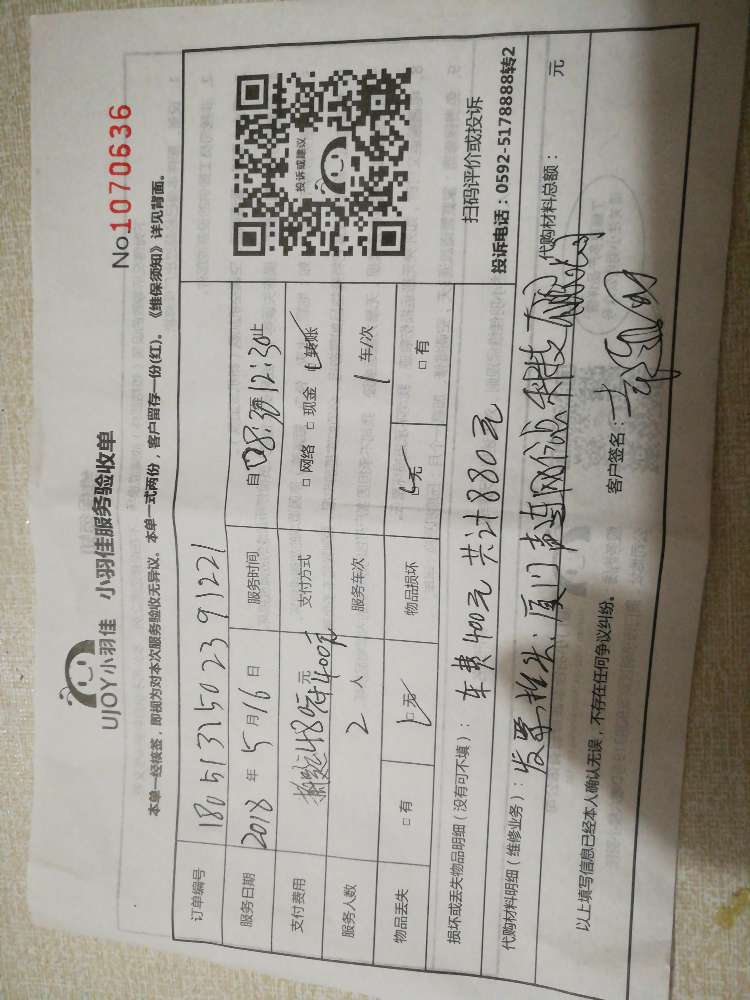 UJOY小羽佳 小羽佳服务验收单
No1070636
本单一经核签，即视为对本次服务验收无异议。本单一式两份，客户留存一份(红)。《维保须知》详见背面。
订单编号 1805131502391221
服务日期 2018 年 5 月 16 日 服务时间 自 08:30 12:30 止
支付费用 搬运480元+400元 元 支付方式 □ 网络 □ 现金 转账
服务人数 2 人 服务车次 1 车/次
物品丢失 □ 有 □ 无 物品损坏 □ 无 □ 有
投诉或建议
扫码评价或投诉
投诉电话：0592-5178888转2
损坏或丢失物品明细（没有可不填）： 车费400元 共计880元
代购材料明细（维修业务）： 发票抬头：厦门 网 科技有限公司
代购材料总额： 元
以上填写信息已经本人确认无误，不存在任何争议纠纷。 客户签名：